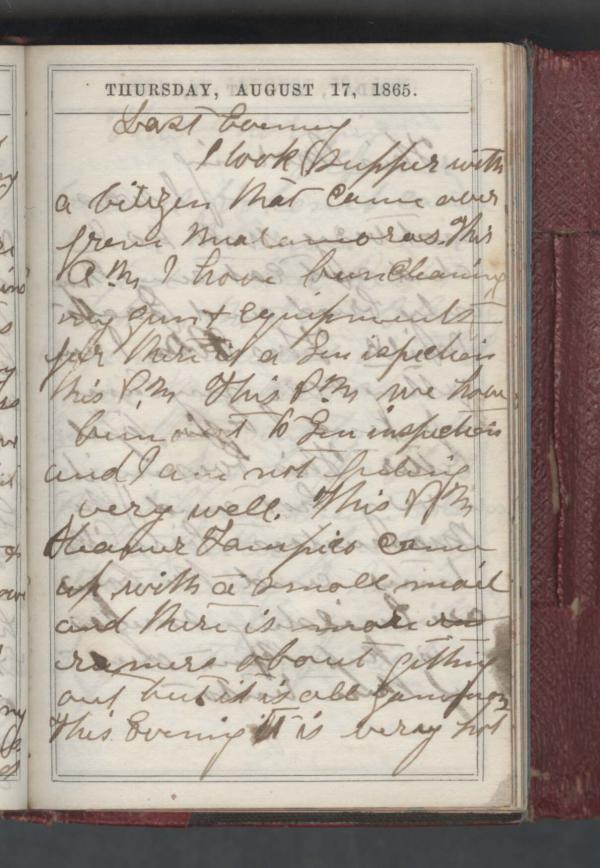 THURSDAY, AUGUST 17, 1865.
Last Evening
I took Supper with
a Citizen that Came over
from Matamoras. This
A.M I have bin Cleaning
my gun & Equipments
for there is a Gen inspection
this P.M This P.M we have
bin out to Gen inspection
and I am not feeling
very well. This P.M
Steamer Tampico Came
up with a small mail
and there is more
ramers about gitting
out but it is all gammon
This Evening it is very hot